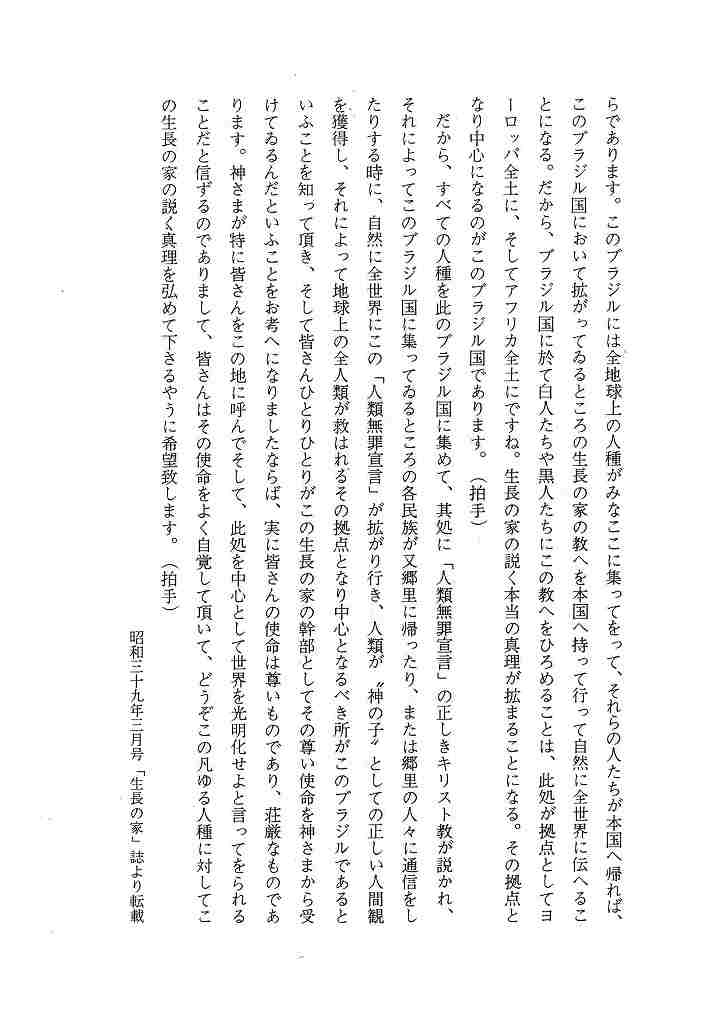 らであります。このブラジルには全地球上の人種がみなここに集ってをって、それらの人たちが本国へ帰れば、
このブラジル国において拡がってゐるところの生長の家の教へを本国へ持って行って自然に全世界に伝へるこ
とになる。だから、ブラジル国に於て白人たちや黒人たちにこの教へをひろめることは、此処が拠点としてヨ
ーロッパ全土に、そしてアフリカ全土にですね。生長の家の説く本当の真理が拡まることになる。その拠点と
なり中心になるのがこのブラジル国であります。（拍手）
だから、すべての人種を此のブラジル国に集めて、其処に「人類無罪宣言」の正しきキリスト教が説かれ、
それによってこのブラジル国に集ってゐるところの各民族が又郷里に帰ったり、または郷里の人々に通信をし
たりする時に、自然に全世界にこの「人類無罪宣言」が拡がり行き、人類が〝神の子〟としての正しい人間観
を獲得し、それによって地球上の全人類が救はれるその拠点となり中心となるべき所がこのブラジルであると
いふことを知って頂き、そして皆さんひとりひとりがこの生長の家の幹部としてその尊い使命を神さまから受
けてゐるんだといふことをお考へになりましたならば、実に皆さんの使命は尊いものであり、荘厳なものであ
ります。神さまが特に皆さんをこの地に呼んでそして、此処を中心として世界を光明化せよと言ってをられる
ことだと信ずるのでありまして、皆さんはその使命をよく自覚して頂いて、どうぞこの凡ゆる人種に対してこ
の生長の家の説く真理を弘めて下さるやうに希望致します。（拍手）
昭和三十九年三月号「生長の家」誌より転載